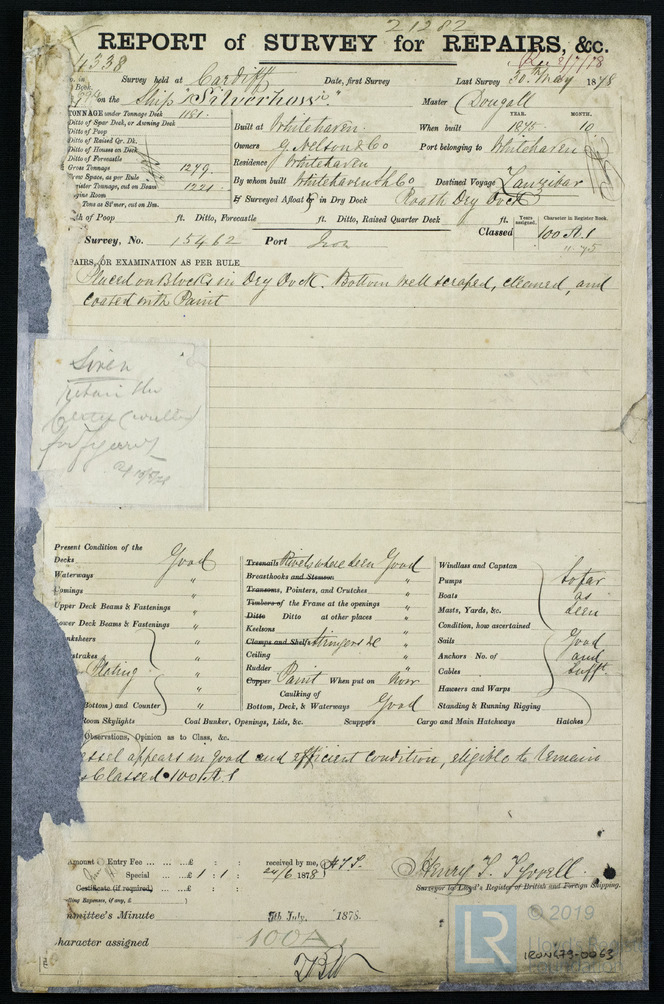 21282
REPORT of SURVEY for REPAIRS, &c.
4338
Rec 2/7/78
Survey held at Cardiff Date, first Survey Last Survey 30th May 1878
on the Ship "Silverhow" Master Dougall
TONNAGE under Tonnage Deck 1181.
Ditto of Spar Deck, or Awning Deck
Ditto of Poop
Ditto of Raised Qr. Dk.
Ditto of Houses on Deck
Ditto of Forecastle
Gross Tonnage 1279.
Crew Space, as per Rule
Register Tonnage, cut on Beam 1221.
Engine Room
Tons as St'mer, cut on Bm.
YEAR. MONTH.
Built at Whitehaven. When built 1875 10
Owners G. Nelson & Co Port belonging to Whitehaven
Residence Whitehaven
By whom built Whitehaven Sh Co Destined Voyage Zanzibar
If Surveyed Afloat or in Dry Dock Roath Dry Dock
th of Poop ft. Ditto, Forecastle ft. Ditto, Raised Quarter Deck ft.
Years assigned. Character in Register Book.
Survey, No. 15462 Port Iron Classed 100 A.1
11.75
PAIRS, OR EXAMINATION AS PER RULE
Placed on Blocks in Dry Dock. Bottom well scraped, cleaned, and
coated with Paint
Siren
for
Present Condition of the
Decks Good
Waterways "
Comings "
Upper Deck Beams & Fastenings "
Lower Deck Beams & Fastenings "
nksheers "
strakes "
Plating "
Bottom) and Counter "
Treenails Rivets where seen Good
Breasthooks and Stemson "
Transoms, Pointers, and Crutches "
Timbers of the Frame at the openings "
Ditto Ditto at other places "
Keelsons "
Clamps and Shelfs Stringers &c "
Ceiling "
Rudder "
Copper Paint When put on Now
Caulking of
Bottom, Deck, & Waterways Good
Windlass and Capstan
Pumps
Boats
Masts, Yards, &c.
so far
as
seen
Condition, how ascertained
Sails
Anchors No. of
Cables
Hawsers and Warps
Standing & Running Rigging
Good
and
Sufft.
Room Skylights Coal Bunker, Openings, Lids, &c. Scuppers Cargo and Main Hatchways Hatches
Observations, Opinion as to Class, &c.
essel appears in good and efficient condition, eligible to remain
s Classed 100 A.1
Amount Entry Fee ... ... ...£ : :
Special ... ...£ 1 : 1 :
Certificate (if required) ...£ : :
lling Expenses, if any, £ )
received by me,
24/6 1878
Henry T. Tyrrell.
Surveyor to Lloyd's Register of British and Foreign Shipping.
mmittee's Minute 5th July, 1878.
haracter assigned 100A
LR
© 2019
IRON673-0063